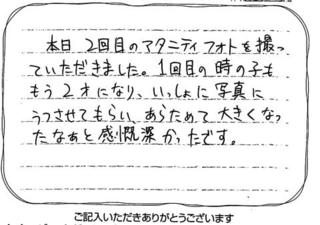 本日 2回目のマタニティフォトを撮っ
ていただきました。1回目の時の子も
もう2才になり、いっしょに写真に
うつさせてもらい、あらためて大きくなっ
たなぁと感慨深かったです。
ご記入いただきありがとうございます